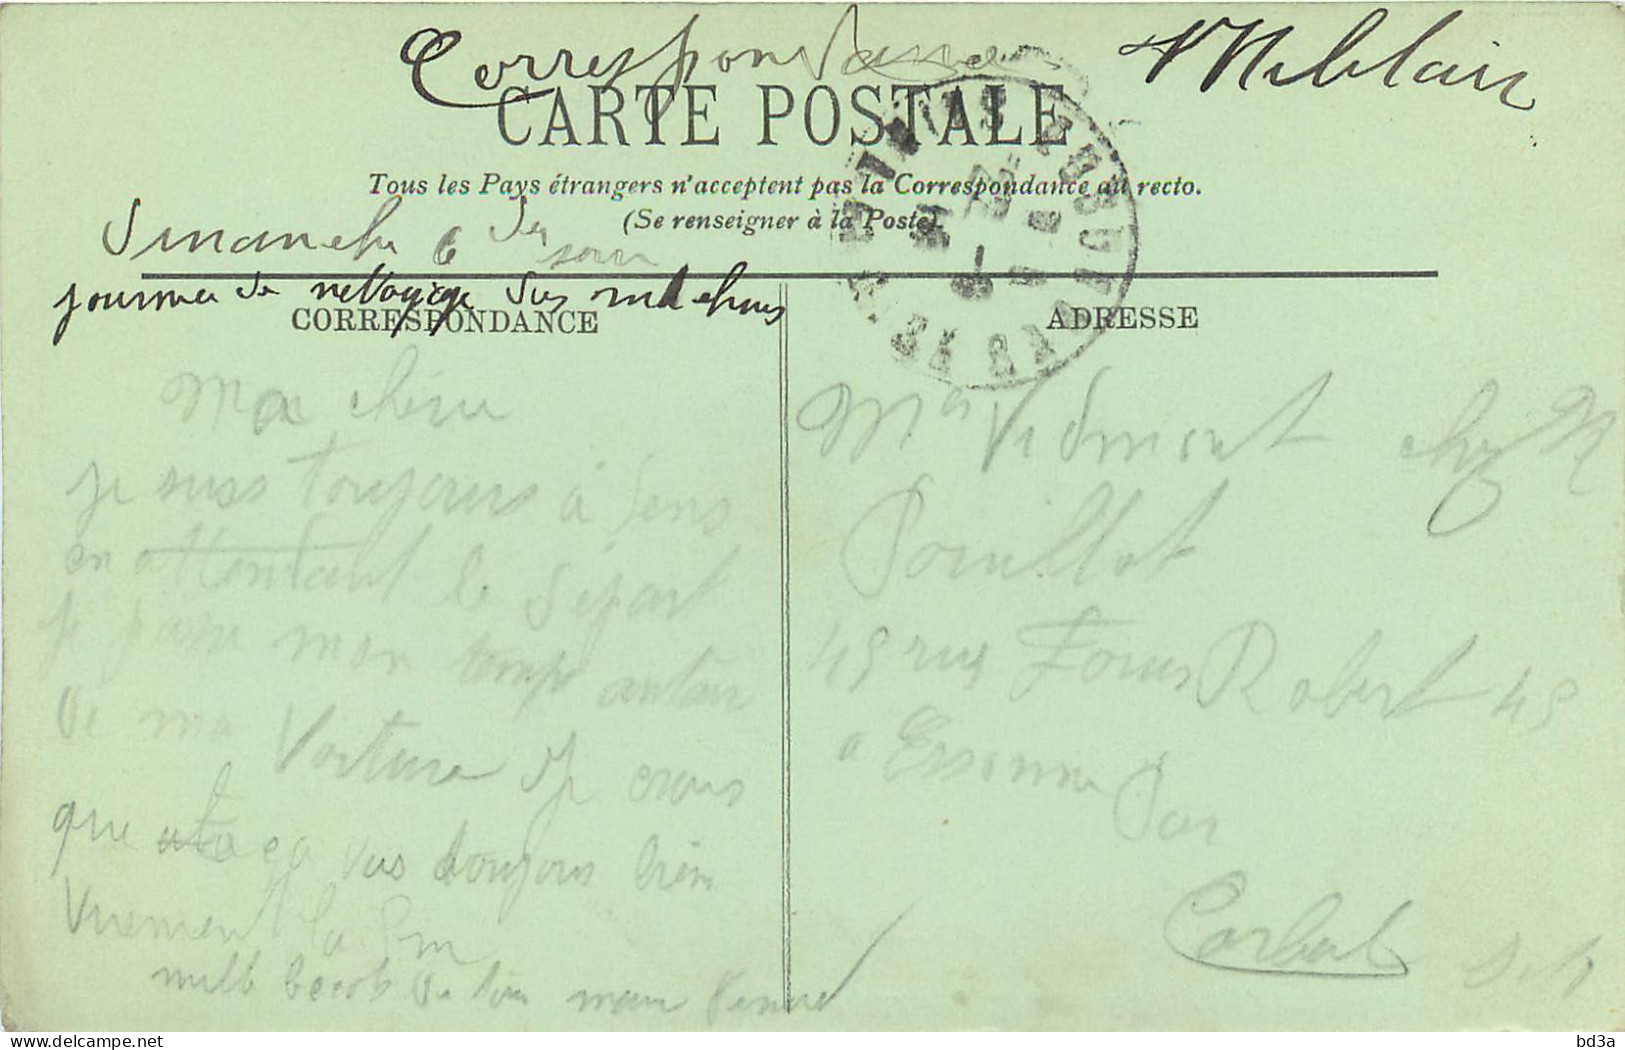 Correspondance Militaire
CARTE POSTALE
Tous les Pays étrangers n'acceptent pas la Correspondance au recto.
(Se renseigner à la Poste).
Dimanche 6 soir
journée de nettoyage des
CORRESPONDANCE
ADRESSE
Ma chérie
je suis toujours à Sens
en attendant le départ
je passe mon temps autour
de ma voiture je crois
que ça vas toujours bien
Vivement la fin
mille becots de ton
Me Vidmont chez M
Pouillot
45 rue Robert 45
a Essonne Par
Corbeil
delcampe.net
bd3a